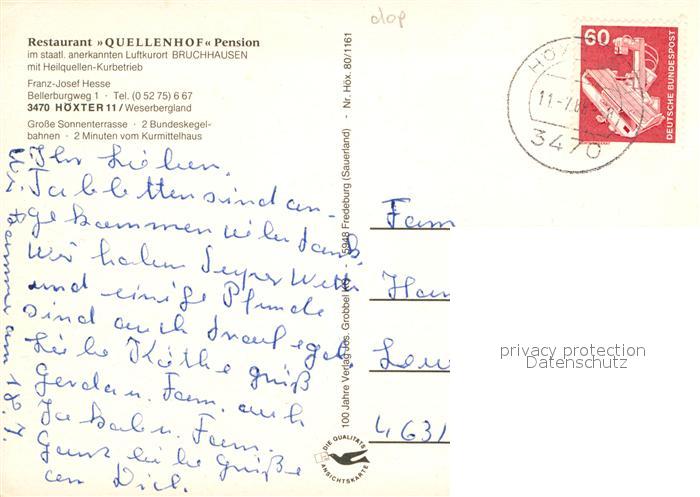 dop
Restaurant »QUELLENHOF« Pension
im staatl. anerkannten Luftkurort BRUCHHAUSEN
mit Heilquellen-Kurbetrieb
Franz-Josef Hesse
Bellerburgweg 1 · Tel. (0 52 75) 6 67
3470 HÖXTER 11 / Weserbergland
Große Sonnenterrasse · 2 Bundeskegel-
bahnen · 2 Minuten vom Kurmittelhaus
Ihr Lieben.
Tabletten sind an-
gekommen vielen Dank,
wir haben Super Wetter
und einige Pfunde
sind auch drauf egal.
Liebe Käthe grüß
Gerda u. Fam. auch
Jakob u. Fam.
Ganz liebe Grüße
an Dich.
kommen am 18.7.
100 Jahre Verlag Jos. Grobbel KG · 5948 Fredeburg (Sauerland) - Nr. Höx. 80/1161
DIE QUALITÄTS
ANSICHTSKARTE
60
DEUTSCHE BUNDESPOST
HÖX
11.-7.
3470
Fam
Han
4631
privacy protection
Datenschutz